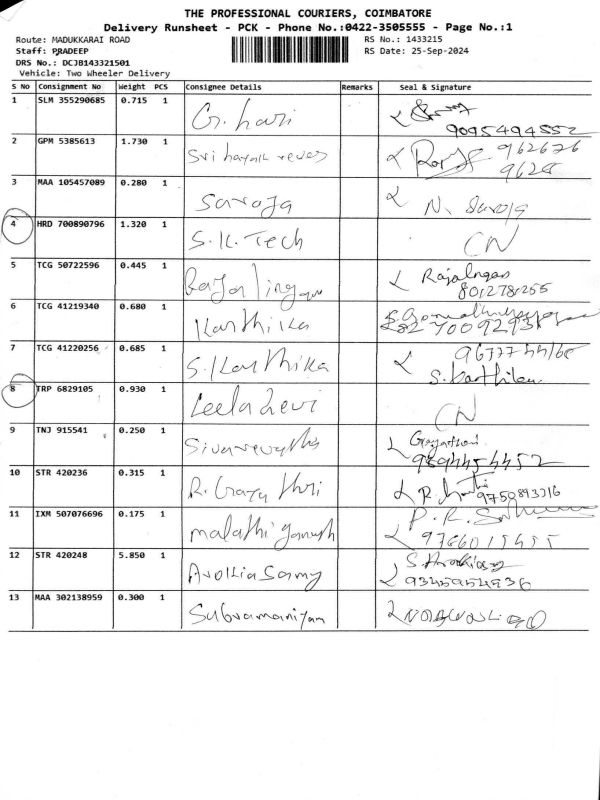 THE PROFESSIONAL COURIERS, COIMBATORE
Delivery Runsheet - PCK - Phone No.:0422-3505555 - Page No.:1
Route: MADUKKARAI ROAD RS No.: 1433215
Staff: PRADEEP RS Date: 25-Sep-2024
DRS No.: DCJB143321501
Vehicle: Two Wheeler Delivery
S No Consignment No Weight PCS Consignee Details Remarks Seal & Signature
1 SLM 355290685 0.715 1 G. hari
9095494552
2 GPM 5385613 1.730 1 962676
9628
3 MAA 105457089 0.280 1 Saroja N. Saroja
4 HRD 700890796 1.320 1 S.K. Tech CN
5 TCG 50722596 0.445 1 Rajalingam
6 TCG 41219340 0.680 1 Karthika
7 TCG 41220256 0.685 1 S. Karthika
8 TRP 6829105 0.930 1 Leela Devi CN
9 TNJ 915541 0.250 1
10 STR 420236 0.315 1 R. Gayathri
11 IXM 507076696 0.175 1 malathi ganesh
12 STR 420248 5.850 1 Arokiasamy
13 MAA 302138959 0.300 1 Subramaniyam